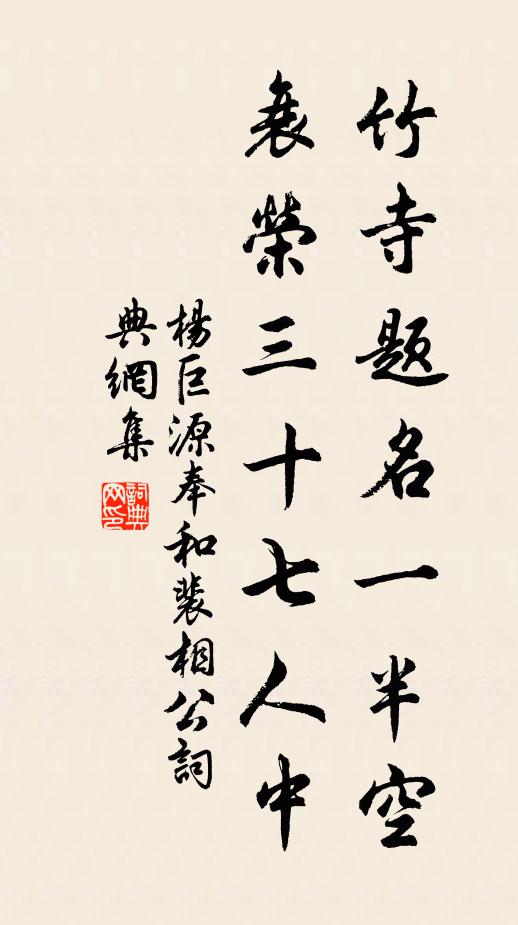 竹寺题名一半空
衰榮三十七人中
楊巨源奉和裴相公詞
典網集
詞典
网印